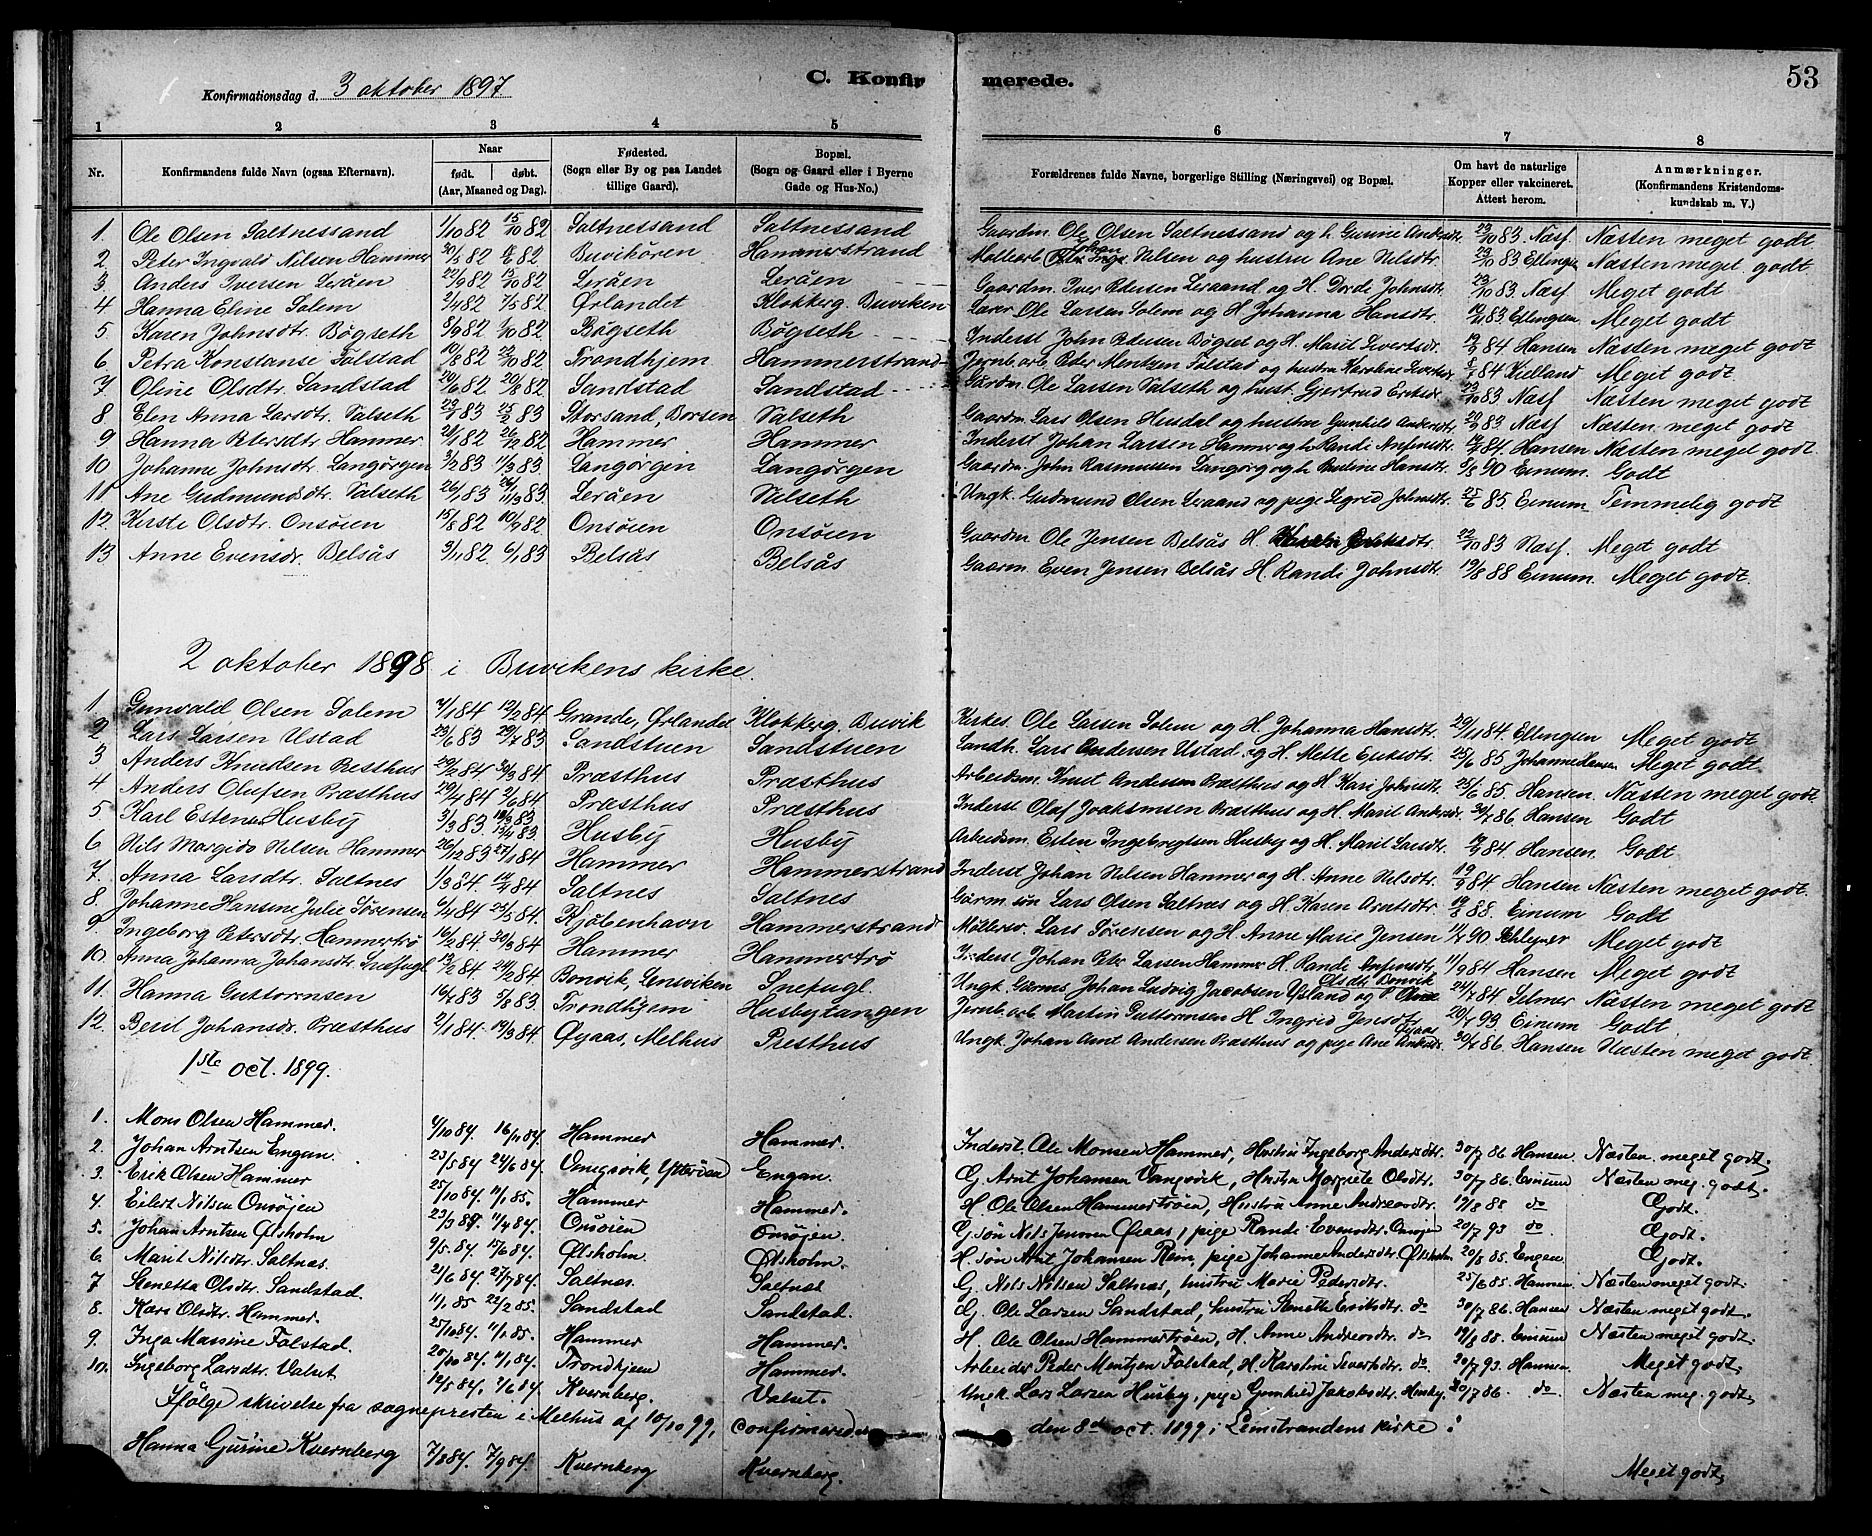 C. Konfirmerede. 53
Konfirmationsdag d. 3 oktober 1897
1 2 3 4 5 6 7 8
Nr. Konfirmandens fulde Navn (ogsaa Efternavn). Naar født. døbt. (Aar, Maaned og Dag). Fødested. (Sogn eller By og paa Landet tillige Gaard). Bopæl. (Sogn og Gaard eller i Byerne Gade og Hus-No.) Forældrenes fulde Navne, borgerlige Stilling (Næringsvei) og Bopæl. Om havt de naturlige Kopper eller vakcineret. Attest herom. Anmærkninger. (Konfirmandens Kristendomskundskab m. V.)
1. Ole Olsen Saltnessand 1/10 82 15/10 82 Saltnessand Saltnessand Gaardm. Ole Olsen Saltnessand og h. Gurine 10 83 Næss. Næsten meget godt
2 Peter Ingvald Nilsen Hammer 82 82 Buvikören Hammerstrand Nilsen og hustru Ane Nilsdtr. 10 83 Ellingsen Næsten meget godt.
3 Anders Iversen Leråen 22/9 82 15/10 82 Leråen Leråen Gaardm. Iver Pdersen Leraand og H. Dorde Johnsdtr. 10 83 Næss. Meget godt
4 Hanna Eline Solem 2/4 82 7/5 82 Ørlandet Klokkerg. Buviken Lærer Ole Larsen Solem og H. Johanna Hansdtr. 83. Ellingsen Meget godt
5 Karen Johnsdtr. Bøgseth 8/9 82 1/10 82 Bøgseth Bøgseth Inderst John Pdersen Bøgset og H. Marit Sivertsdr. 84 Hansen Næsten meget godt
6 Petra Konstanse Folstad 10/8 82 22/10 82 Trondhjem Hammerstrand Jernb. arb. Peder Mentzen Folstad og hustru Karoline Sivertsdr 84 Kielland Meget godt
7 Oline Olsdtr. Sandstad 20/6 82 20/8 82 Sandstad Sandstad Gardm. Ole Larsen Valseth og hust. Gjertrud Eriksdr. 10 83 Næss Næsten meget godt
8 Elen Anna Larsdtr. Valseth 83 83 Storsand, Børsen Valseth Gaardm. Lars Olsen Husdal og hustru Gunhild 83. Næss Næsten meget godt
9 Hanna Petersdtr. Hammer 82 82 Hammer Hammer Inderst Johan Larsen Hammer og h. Randi Anfinsdtr. 84. Hansen Næsten meget godt
10 Johanne Johnsdtr. Langørgen 3/2 83 11/3 83. Langørgen Langørgen Gaardm. John Rasmussen Langørg og h. Pauline Hansdtr. 90 Einum. Godt
11 Ane Gudmundsdtr. Valseth 26/1 83 83. Leråen Valseth Ungk. Gudmund Olsen Leraand og pige Sigrid Johnsdtr. 25/6 85 Einum Temmelig godt
12. Kirste Olsdtr. Onsøien 15/8 82 10/9 82 Onsøien Onsøien Gaardm. Ole Jensen Belsås H. 22/10 83 Næss. Meget godt
13 Anne Evensdr. Belsås 3/11 82 6/1 83 Belsås Belsås Gaarm. Even Jensen Belsås H. Randi Johnsdtr. 19/8 88 Einum. Meget godt.
2 oktober 1898 i Buvikens kirke.
1. Gunvald Olsen Solem 84 12/2 84 Grande, Ørlandet Klokkerg. Buvik Kirkes. Ole Larsen Solem og H. Johanna Hansdtr. 29/11 84 Ellingsen Meget godt
2 Lars Larsen Ustad 23/6 83 29/7 83 Sandstuen Sandstuen Landh. Lars Andersen Ustad og H. Mette Eriksdtr. 25/6 85 Johannes Hansen Meget godt
3 Anders Knudsen Presthus 29/2 84 30/3 84 Præsthus Præsthus Arbeidsm. Knut Andersen Præsthus og H. Kari Johnsdtr. 25/6 85. Hansen. Næsten meget godt
4 Anders Olufsen Præsthus 29/4 84 2/6 84 Præsthus Præsthus Inderst Olaf Joakimsen Præsthus og H. Marit 30/7 86 Hansen Godt
5 Karl Estensen Husby 3/3 83 83 Husby Husby Arbeidsm. Esten Ingebrigtsen Husby og H. Marit Larsdtr. 84 Hansen. Godt
6 Nils Margido Nilsen Hammer 26/12 83 27/1 84 Hammer Hammerstrand Inderst Johan Nilsen Hammer og H. Anne Nilsdtr. 19/9 84 Hansen Næsten meget godt
7. Anna Larsdtr. Saltnes 1/3 84 84 Saltnes Saltnes Lars Olsen Saltnes og H. Karen Arntsdtr. 19/8 88. Einum Godt
8. Johanne Hansine Julie Sørensen 6/4 84 25/5 84. Kjøbenhavn Hammerstrand Møllersv. Lars Sørensen og H. Anne Marie Jensen 90 Meget godt
9. Ingeborg Petersdtr. Hammertrø 16/2 84 30/3 84 Hammer Hammertrø Inderst Johan Peter Larsen Hammer H. Randi Anfinsdtr. 11/9 84 Hansen Meget godt
10. Anna Johanna Johansdtr. Snefugl 84 24/2 84. Bonvik, Lensviken Snefugl. Ungk. Johan Ludvig Jacobsen Ysland og Olsdtr Bonvik 24/7 84 Selmer Næsten meget godt
11. Hanna Guttormsen 16/7 83 5/8 83. Trondhjem Husbytangen Jernb. arb. Martin Guttormsen H. Ingrid Jensdtr 20/7 93. Einum Godt
12. Beril Johansdr. Præsthus 2/1 84 84. Øyaas, Melhus Presthus Ungk. Johan Arnt Andersen Præsthus og pige Ane Øyaas 30/7 86. Hansen Næsten meget godt
1ste oct. 1899.
1. Mons Olsen Hammer. 4/10 84. 16/11 84. Hammer Hammer. Inderst Ole Monsen Hammer, Hustru Ingeborg Andersdtr. 30/7 86 Hansen Næsten meget godt.
2. Johan Arntsen Engan. 23/5 84 24/6 84. Vangsvik, Ytterøen Engan. G. Arnt Johansen Vangsvik, Hustru Margrete Olsdtr. 30/7 86. Einum Næsten meg. godt.
3. Erik Olsen Hammer 25/10 84 11/1 85. Hammer Hammer. H. Ole Olsen Hammertrøen, Hustru Anne Andreasdtr. 19/8 88 do Godt.
4. Eilert Nilsen Onsøjen 23/3 84. 11/4 84. Onsøien Onsøjen. G. søn Nils Jensen Øiaas, pige Randi Evensdtr. Onsøjen 20/7 93 do Godt.
5. Johan Arntsen Ølsholm 9/5 84. 15/6 84. Ølsholm. Ølsholm. H. søn Arnt Johansen Rein, pige Johanne Andersdtr. Ølsholm 20/8 85. Engen Godt.
6. Marit Nilsdtr. Saltnæs. 21/6 84. 27/7 84. Saltnæs. Saltnæs G. Nils Nilsen Saltnæs, hustru Marie Pedersdtr. 25/6 85. Hansen Næsten meget godt.
7 Stenetta Olsdtr. Sandstad. 11/1 85 22/2 85. Sandstad Sandstad. G. Ole Larsen Sandstad, hustru Senette Eriksdtr. do 30/7 86. Hansen Næsten meget godt.
8. Kars Olsdtr. Hammer. 25/10 84. 11/1 85. Hammer Hammer. H. Ole Olsen Hammertrøen, H. Anne Andreasdtr. do 19/8 88. Einum Næsten meget godt.
9. Inga Massine Folstad. 20/10 84. 11/1 84. Trondhjem Hammer. Arbeider Peder Mentzen Folstad, H. Karoline Sivertsdtr. do 20/7 93. Hansen Meget godt.
10. Ingeborg Larsdtr. Valset 12/5 84. 7/6 84. Kvernberg. Valset. Ungk. Lars Larsen Husby, pige Gunhild Jakobsdtr. Husby. 30/7 86. do Næsten meg. godt.
Ifölge skrivelse fra sognepresten i Melhus af 10/10 99, confirmeredes den 8de oct. 1899 i Leinstrandens kirke:
Hanna Gurine Kvernberg 7/8 84. 7/9 84. Kvernberg Kvernberg. Meget godt.